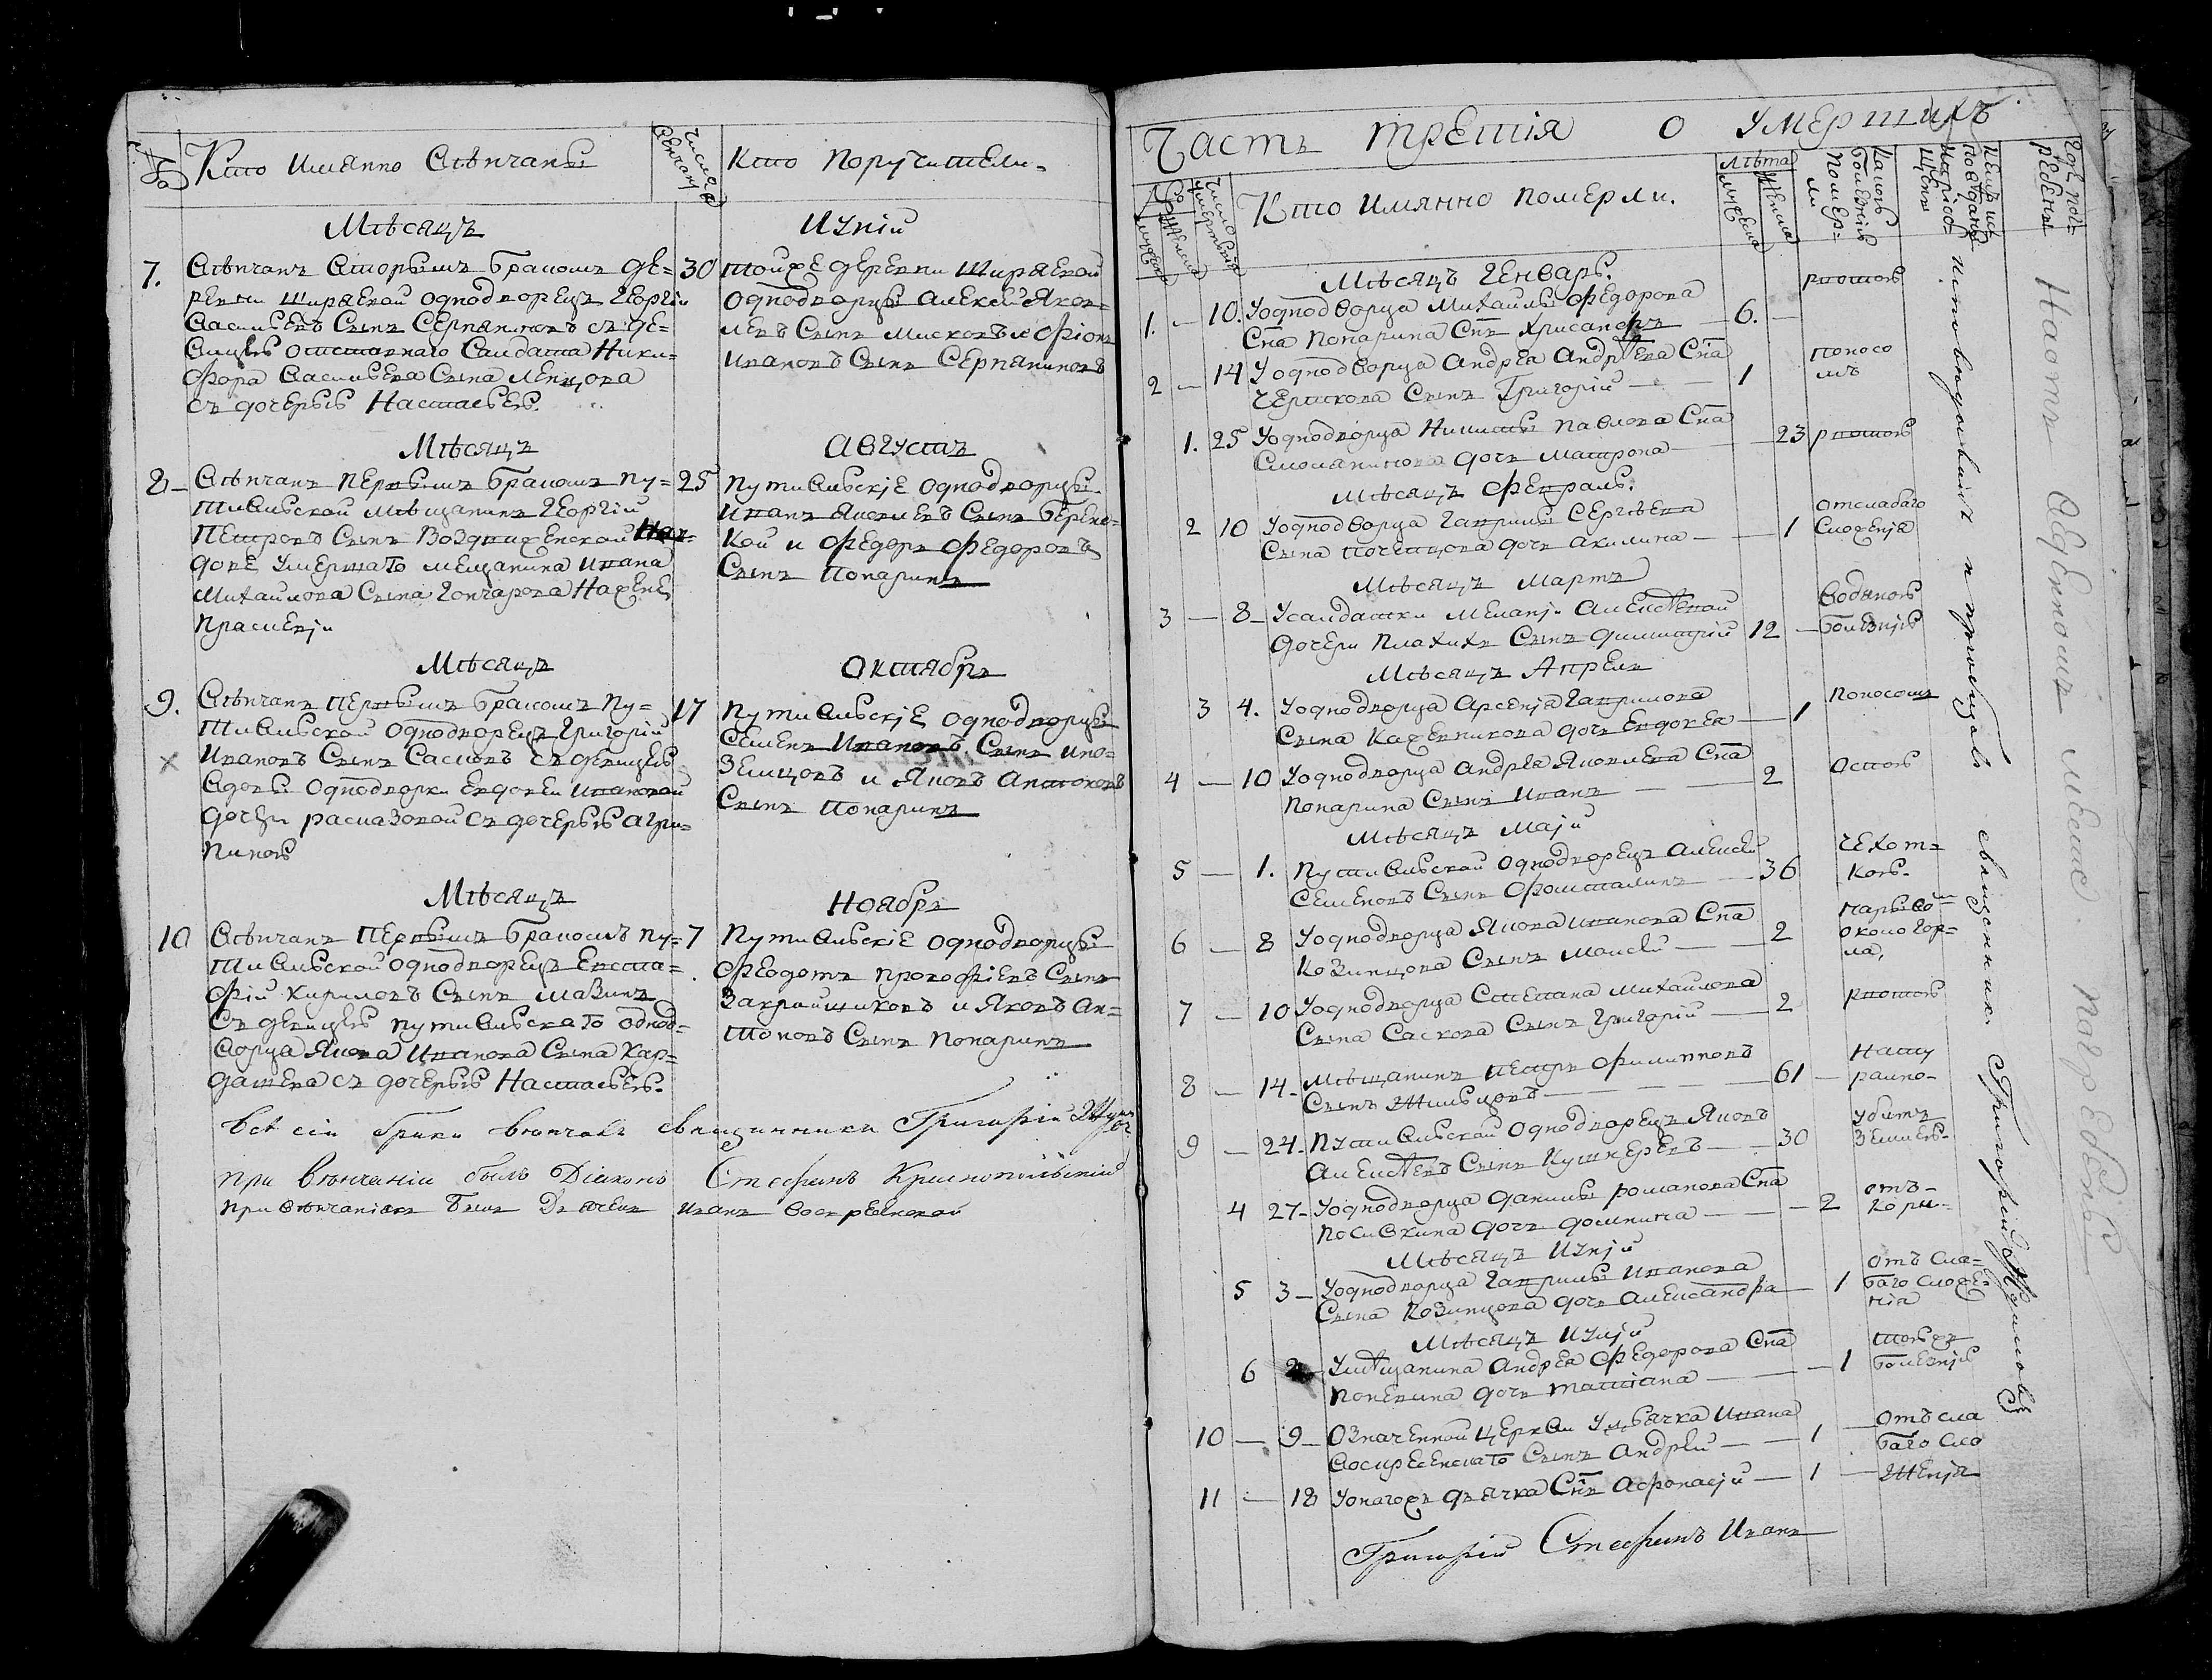 №
Кто имянно Свѣнчаны
Числа Свѣнчаны
Кто поручители.
Мѣсяцъ Иунiй
7. Свѣнчанъ вторымъ бракомъ де=
ревни Ширяевой однодворецъ Георгiй
Васильевъ Сынъ Серпяниновъ съ де=
вицѣю отставнаго Салдата Ники=
фора Васильева Сына
съ дочерью Настасьею.
30
тойже деревни Ширяевой
однодворцы Алексѣй Яков=
левъ Сынъ и
Ивановъ Сынъ Серпяниновъ
Мѣсяцъ Августъ
8 Свѣнчанъ первымъ бракомъ Пу=
тивльской мѣщанинъ Георгiй
Петровъ Сынъ Воздвиженской На в=
дове умершаго мещанина Ивана
Михайлова Сына Гончарова На жене
Прасковiи
25
Путивльскiе однодворцы
Иванъ Яковлевъ Сынъ
и Федоръ Федоровъ
Сынъ Попаринъ
Мѣсяцъ Октябрь
9. Свѣнчанъ первымъ бракомъ Пу=
тивльской однодворецъ Григорiй
Ивановъ Сынъ съ девицѣю
вдовы однодворки Евдокеи Ивановой
дочери съ дочерью Агри=
пиною
17
Путивльскiе однодворцы
Семенъ Ивановъ Сынъ Ино=
земцовъ и Яковъ Антоновъ
Сынъ Попаринъ
Мѣсяцъ Ноябрь
10 Свѣнчанъ первымъ бракомъ Пу=
тивльской однодворецъ Евста=
фiй Кириловъ Сынъ Мазинъ
съ девицѣю Путивльскаго однод=
ворца Якова Иванова Сына Кар=
дашева съ дочерью Настасьею.
7
Путивльскiе однодворцы
Феодотъ Прокофiевъ Сынъ
Закройщиковъ и Яковъ Ан=
тоновъ Сынъ Попаринъ
Всѣ сiи браки вѣнчалъ священникъ Григорiй
при вѣнчанiи былъ Дiаконъ Стефанъ Краснопольскiй
при вѣнчанiяхъ былъ Дьячекъ Иванъ Воскресенской
Часть третiя о умершихъ
Число умертвiя
Кто имянно померли.
лѣта
мужеска
женска
Какою болѣзнiю померли
Где погребены
Мѣсяцъ Генварь.
1. — 10. У однодворца Михайлы Федорова
Сна Попарина Снъ Хрисанфъ — 6. — рвотою
2 — 14 У однодворца Андрея Андрѣева Сна
Сынъ Григорiй — 1 поносо
мъ
1. 25 У однодворца Никиты Павлова Сна
Смолянинова дочь Матрона — 23 рвотою
Мѣсяцъ Февраль.
2 10 У однодворца Гаврилы Сергѣева
Сына дочь Акилина — 1 от слабаго
сложенiя
Мѣсяцъ Мартъ
3 — 8 У салдатки Меланiи Алексѣевой
дочери Сынъ Димитрiй 12 — водяною
болѣзнiю
Мѣсяцъ Апрель
3 4. У однодворца Арсенiя Гаврилова
Сына Кожевникова дочь Евдокеа — 1 поносомъ
4 — 10 У однодворца Андрея Яковлева Сна
Попарина Сынъ Иванъ — 2 оспою
Мѣсяцъ Маiй
5 — 1. Путивльской однодворецъ Алексѣй
Семеновъ Сынъ — 36 чехот=
кою.
6 — 8 У однодворца Якова Иванова Сна
Козинцова Сынъ Моисей — 2
около гор=
ла,
7 — 10 У однодворца Степана Михайлова
Сына Сынъ Григорiй — 2 рвотою
8 — 14. Мѣщанинъ Петръ Филиповъ
Сынъ — 61
9 — 24. Путивльской однодворецъ Яковъ
Алексѣевъ Сынъ Кушнеревъ — 30 убитъ
землею.
4 27 У однодворца Данилы Романова Сна
дочь Домникiа — 2 отъ
кори.
Мѣсяцъ Иунiй
5 3 У однодворца Гаврилы Иванова
Сына Козинцова дочь Александра — 1 отъ сла=
баго сложе=
нiя
Мѣсяцъ Иулiй
6 У мѣщанина Андрея Федорова Сна
дочь Татiана — 1 тоюже
болезнiю
10 — 9 Означенной церкви У дьячка Ивана
Воскресенскаго Сынъ Андрей — 1 — отъ сла
баго сло
11 — 18 У онагожъ дьячка Снъ Афонасiй — 1 — женiя
Григорiй Стефанъ Иванъ
исповедывалъ и прiобщалъ священникъ Григорiй
На отведенномъ месте погребены